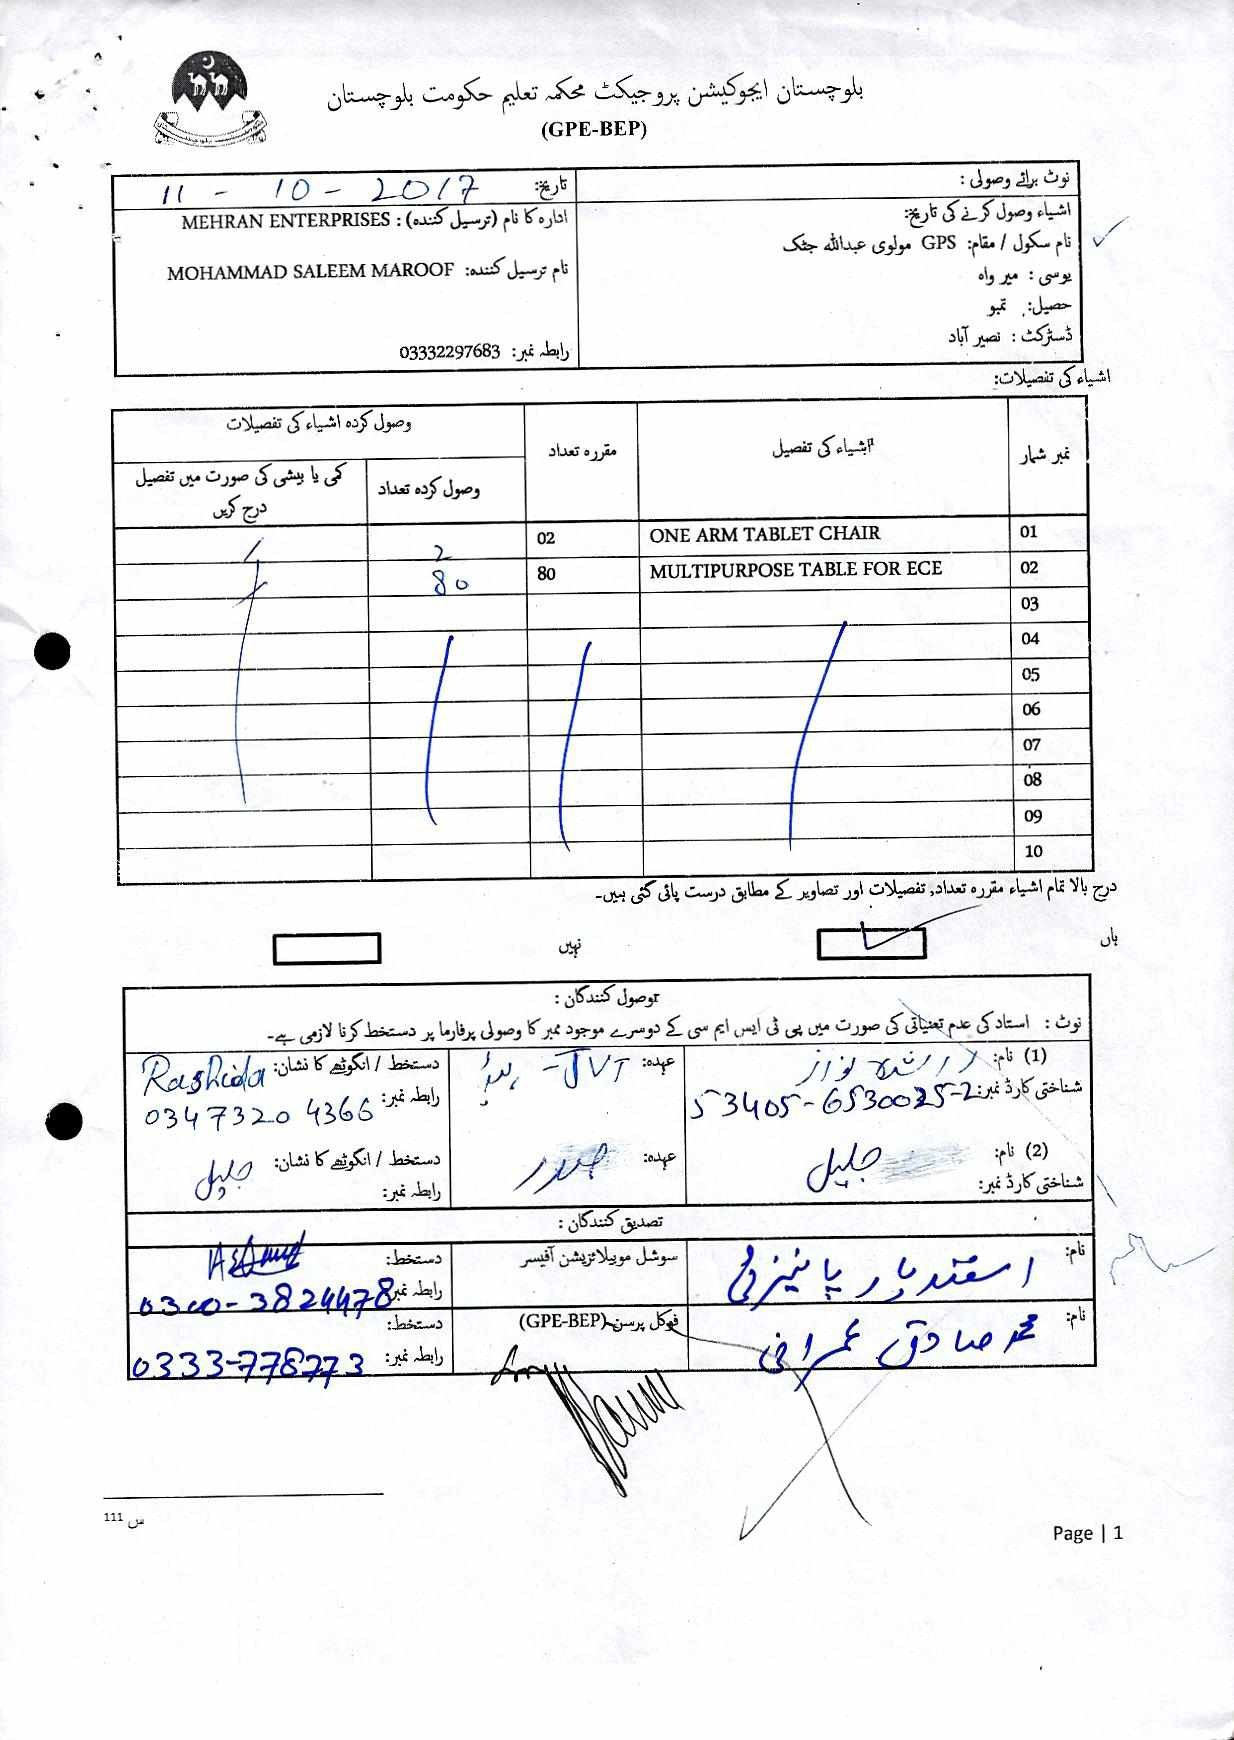 بلوچستان ایجوکیشن پروجیکٹ محکمہ تعلیم حکومت بلوچستان
(GPE-BEP)
نوٹ برائے وصولی :
تاریخ: 11 - 10 - 2017
اشیاء وصول کرنے کی تاریخ:
ادارہ کا نام (ترسیل کنندہ) : MEHRAN ENTERPRISES
نام سکول / مقام: GPS مولوی عبداللہ جٹک
نام ترسیل کنندہ: MOHAMMAD SALEEM MAROOF
یوسی : میر واہ
حصیل: تمبو
ڈسٹرکٹ : نصیر آباد
رابطہ نمبر: 03332297683
اشیاء کی تفصیلات:
نمبر شمار اشیاء کی تفصیل مقررہ تعداد وصول کردہ اشیاء کی تفصیلات
وصول کردہ تعداد کمی یا بیشی کی صورت میں تفصیل درج کریں
01 ONE ARM TABLET CHAIR 02 2
02 MULTIPURPOSE TABLE FOR ECE 80 80
03
04
05
06
07
08
09
10
درج بالا تمام اشیاء مقررہ تعداد, تفصیلات اور تصاویر کے مطابق درست پائی گئی ہیں۔
ہاں نہیں
وصول کنندگان :
نوٹ : استاد کی عدم تعیناتی کی صورت میں پی ٹی ایس ایم سی کے دوسرے موجود ممبر کا وصولی پرفارما پر دستخط کرنا لازمی ہے۔
(1) نام: راشدہ نواز عہدہ: JVT دستخط / انگوٹھے کا نشان: Rashida
شناختی کارڈ نمبر: 53405-6530025-2 رابطہ نمبر: 03473204366
(2) نام: جلیل عہدہ: صدر دستخط / انگوٹھے کا نشان: جلیل
شناختی کارڈ نمبر: رابطہ نمبر:
تصدیق کنندگان :
نام: اسفندیار پانیزئی سوشل موبیلائزیشن آفیسر دستخط:
رابطہ نمبر: 0300-3824478
نام: محمد صادق عمرانی فوکل پرسن (GPE-BEP) دستخط:
رابطہ نمبر: 0333-778773
س 111
Page | 1